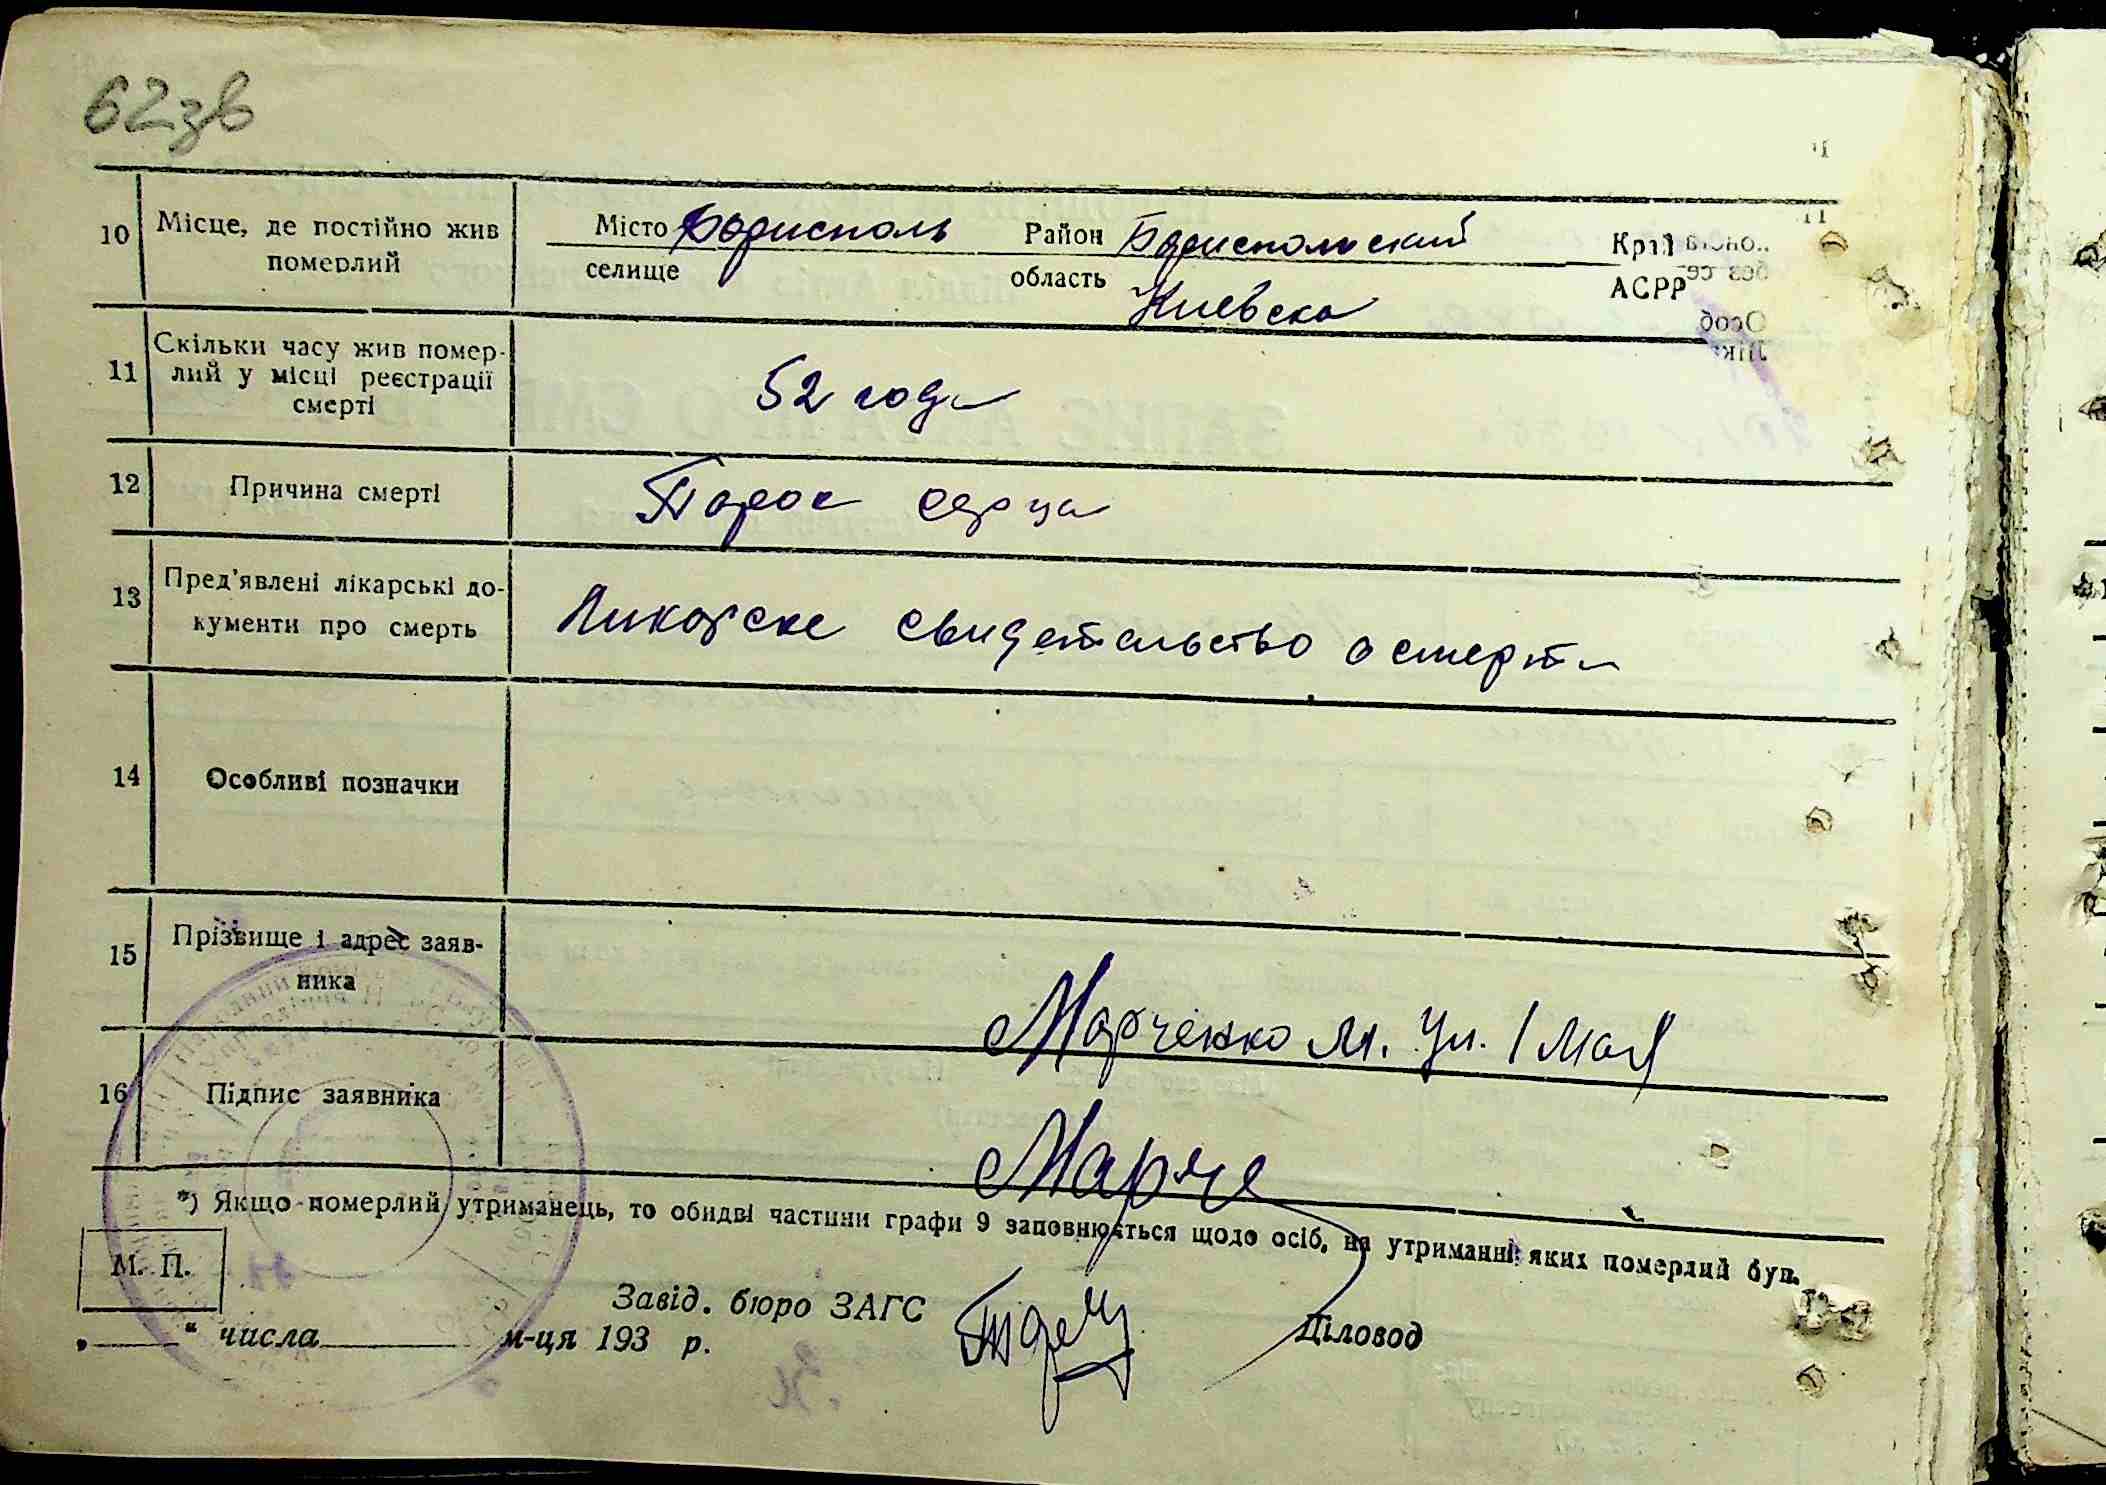 62зв
10 Місце, де постійно жив померлий
Місто Борисполь Район Бориспольский Край
селище область Киевска АСРР
11 Скільки часу жив помер-
лий у місці реєстрації
смерті
52 года
12 Причина смерті Порок серца
13 Пред'явлені лікарські до-
кументи про смерть
Ликарске свидетельство о смерти
14 Особливі позначки
15 Прізвище і адрес заяв-
ника
Марченко М. Ул. 1 Мая
16 Підпис заявника
Марче
*) Якщо померлий утриманець, то обидві частини графи 9 заповнюється щодо осіб, на утриманні яких померлий був.
М. П.
Завід. бюро ЗАГС Діловод
„ " числа м-ця 193 р.